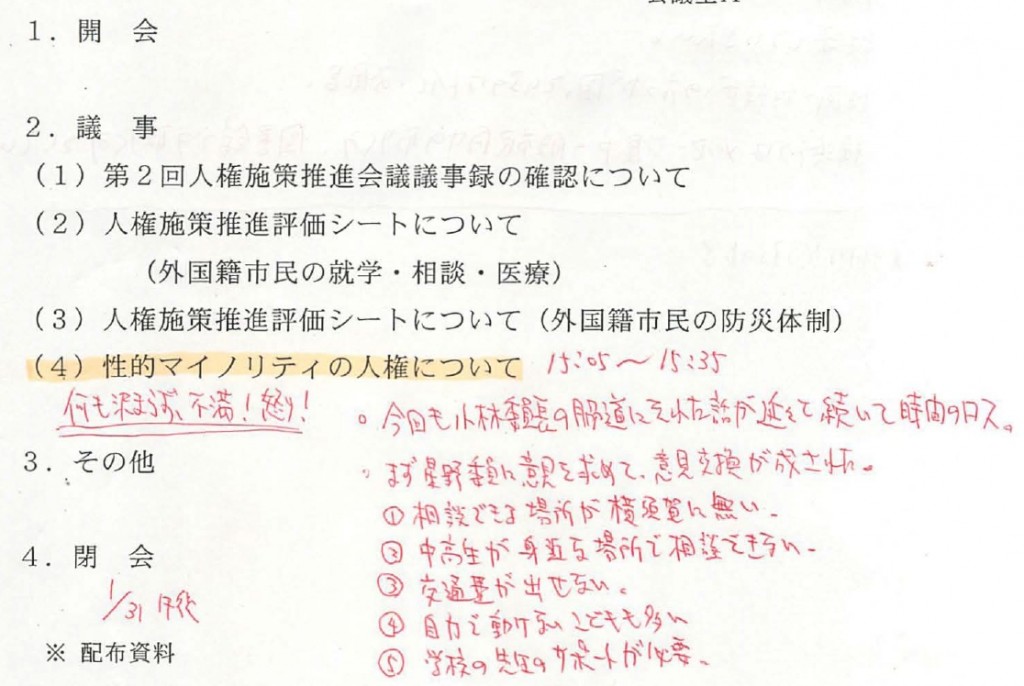 1．開　会
2．議　事
（1）第２回人権施策推進会議議事録の確認について
（2）人権施策推進評価シートについて
（外国籍市民の就学・相談・医療）
（3）人権施策推進評価シートについて（外国籍市民の防災体制）
（4）性的マイノリティの人権について 15:05～15:35
何も決まらず、不満！怒り！
。今回も小林委員長の脇道にそれた話が延々と続いて時間のロス。
3．その他
。まず星野委員に意見を求めて、意見交換が成された。
① 相談できる場所が横須賀に無い。
② 中高生が身近な場所で相談できない。
4．閉　会
③ 交通費が出せない。
1/31 午後
④ 自力で動けないこどもも多い
※ 配布資料
⑤ 学校の先生のサポートが必要。